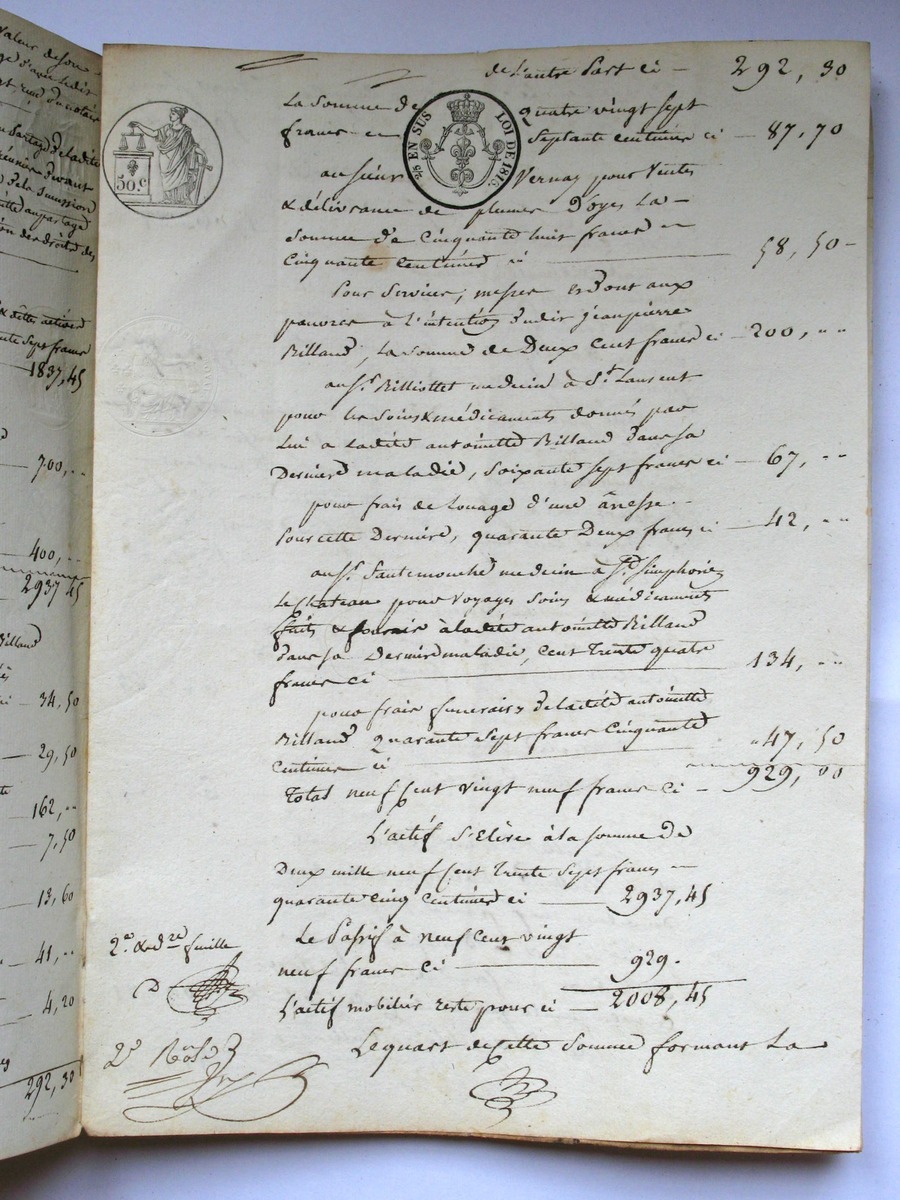 valeur de son
1837,45
700,..
400,..
2937 45
Billaud
34,50
29,50
162,..
7,50
13,60
41,..
4,20
292,30
de l'autre Part ci — 292,30
La Somme de quatre vingt sept
francs en septante centimes ci — 87,70
50.C
2/10 EN SUS LOI DE 1816.
au sieur Vernay pour Ventes
& délivrance de plumes D'oyes La
Somme de Cinquante huit francs
Cinquante Centimes ci — 58,50
Pour Services, messes et dont aux
pauvres à l'intention dudit jean pierre
Billaud, La Somme de Deux Cent francs ci — 200,..
au Sr. Billiottet medecin à St. Laurent
pour les Soins & médicaments donnés par
Lui a Ladite antoinette Billaud dans sa
Derniere maladie, soixante sept francs ci — 67,..
pour frais de Louage d'une ânesse
Pour cette Derniere, quarante Deux francs ci — 42,..
au Sr. Sautemouche medecin à St. Simphorien
Le Chateau pour Voyages Soins & médicaments
faits & fournis à ladite antoinette Billaud
dans sa Derniere maladie, Cent Trente quatre
francs ci — 134,..
pour frais funeraires de ladite antoinette
Billaud quarante sept francs Cinquante
Centimes ci — 47,50
Total neuf Cent Vingt neuf francs ci — 929,00
L'actif S'Elève à la somme de
Deux mille neuf Cent Trente Sept francs
quarante Cinq Centimes ci — 2937,45
Le Passif à neuf Cent vingt
neuf francs ci — 929.
L'actif mobilier reste pour ci — 2008,45
2e. & dre. feuille
2e Rôle
Le quart de Cette Somme formant La